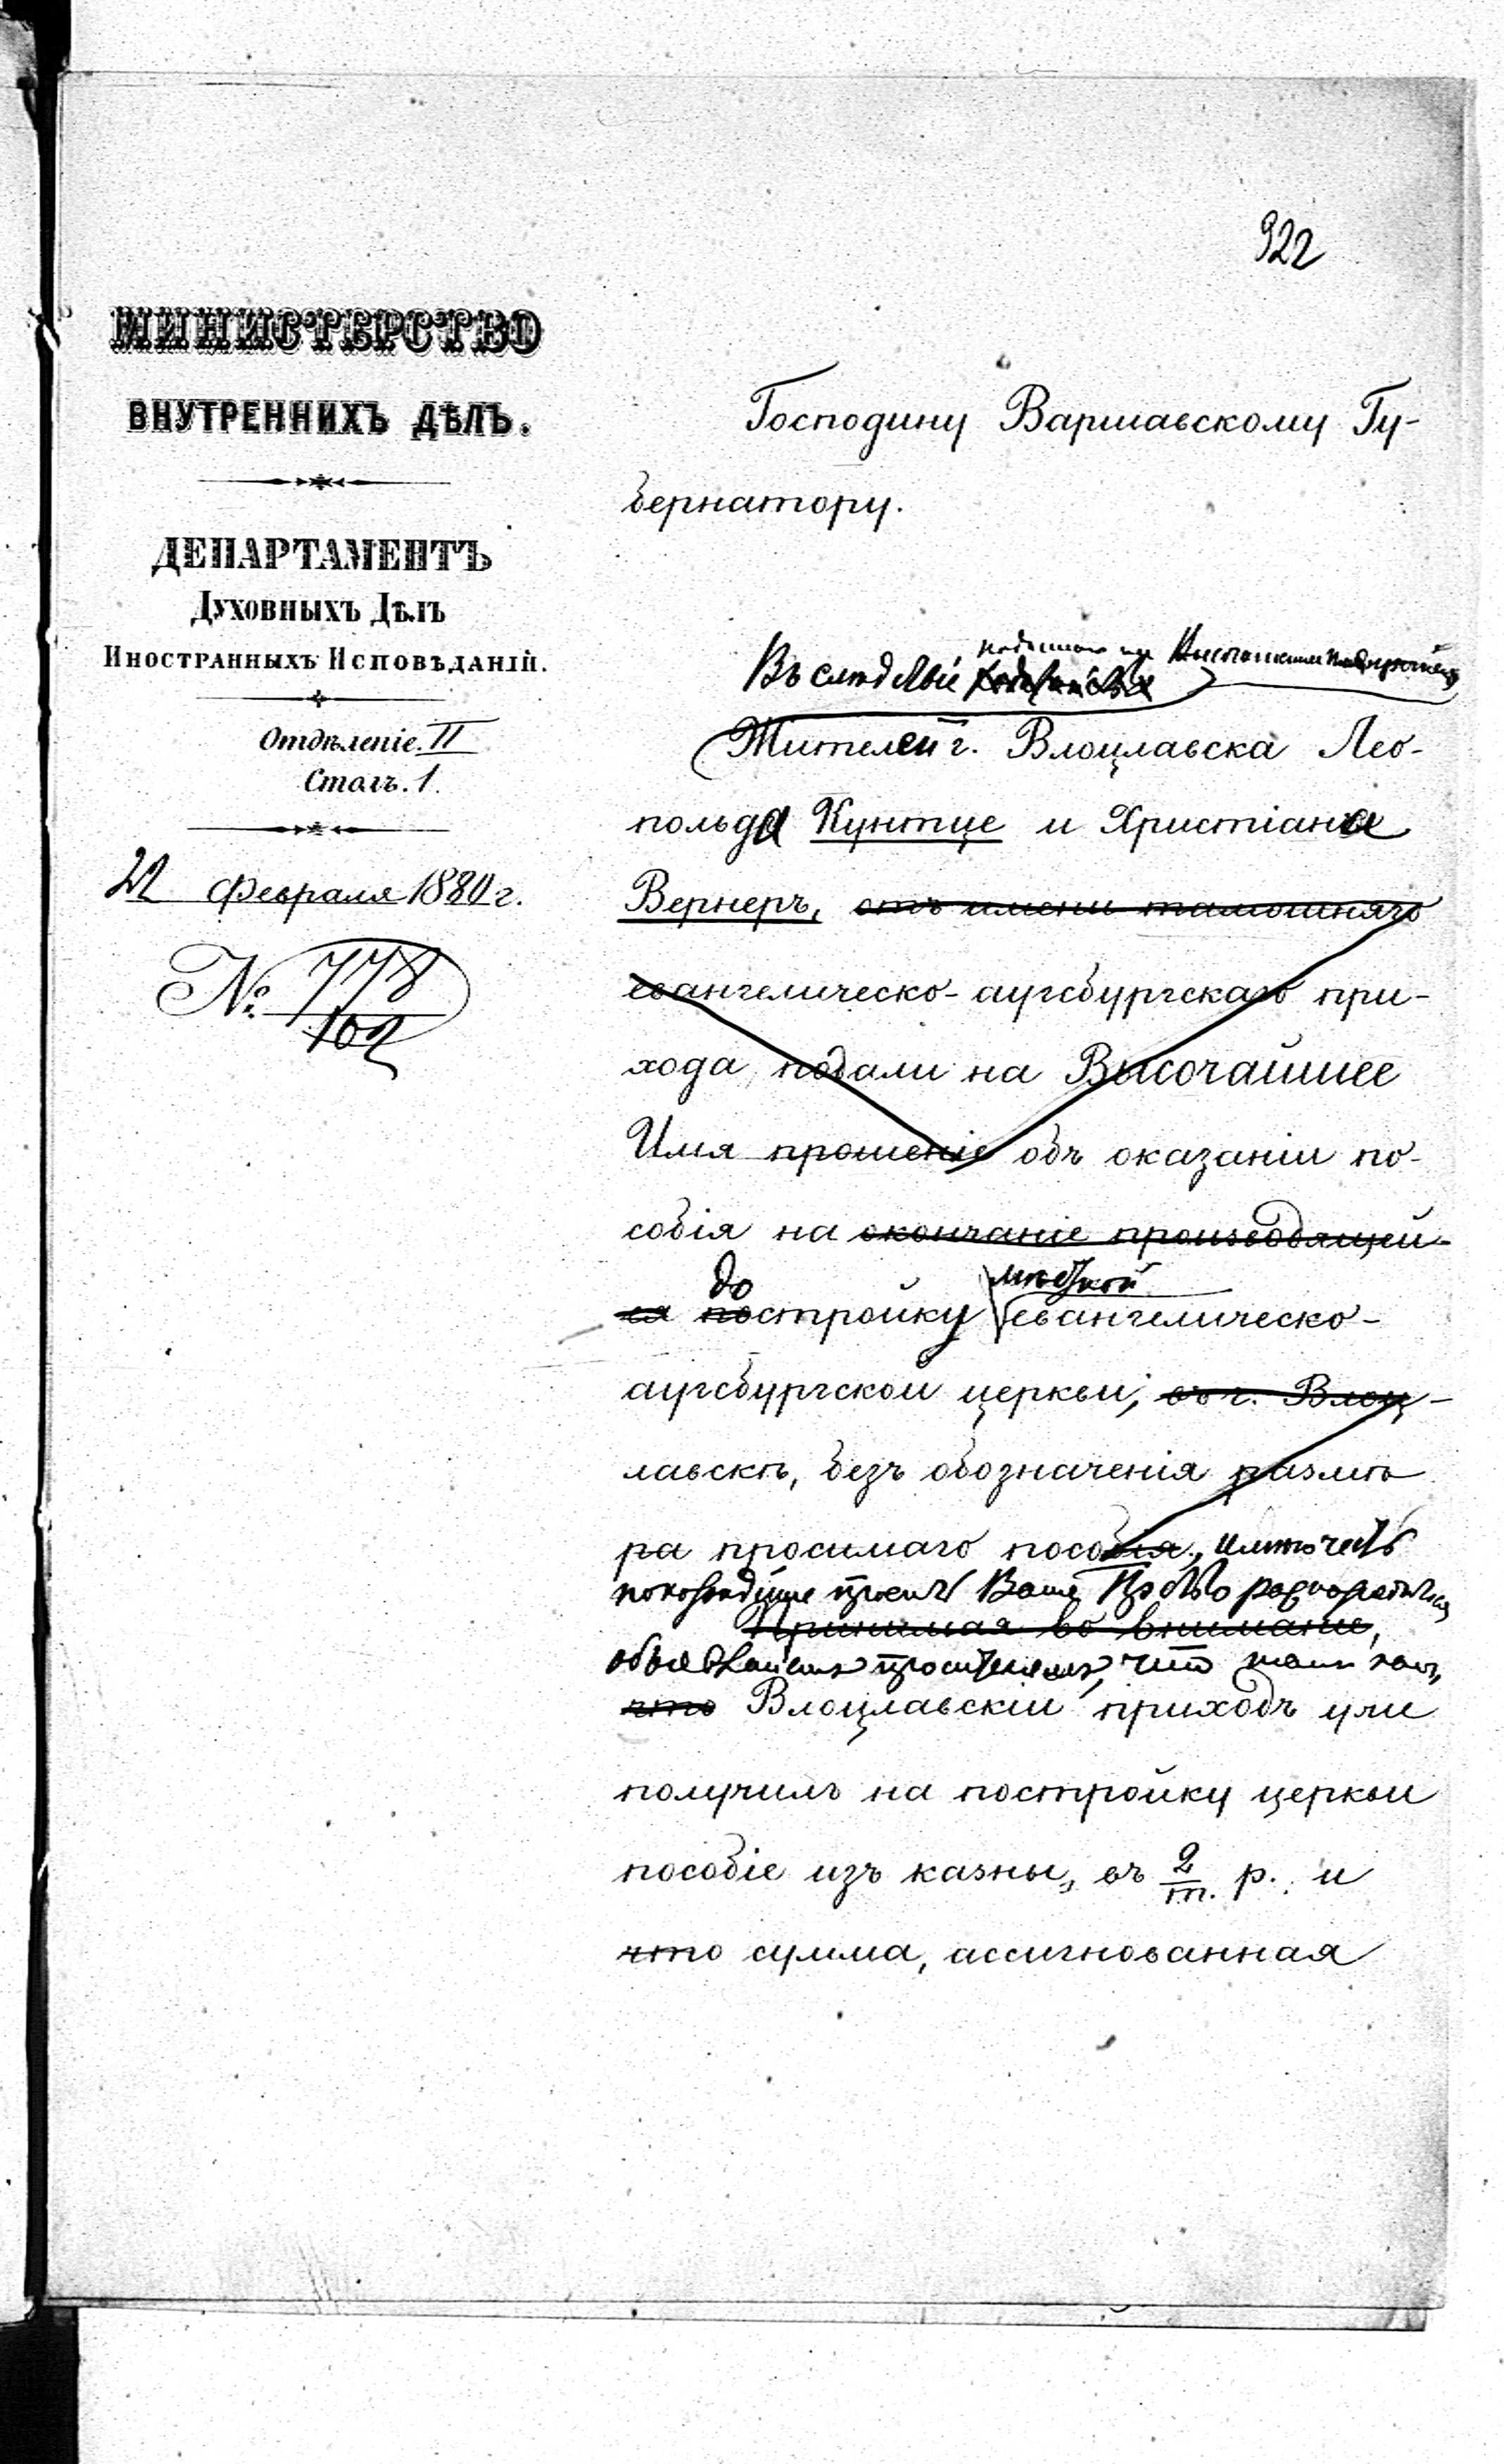 922
МИНИСТЕРСТВО
ВНУТРЕННИХЪ ДѢЛЪ.
ДЕПАРТАМЕНТЪ
Духовныхъ Дѣлъ
Иностранныхъ Исповѣданій.
Отдѣленіе. II
Столъ. 1.
22 Февраля 1880 г.
№ 778
102
Господину Варшавскому Гу-
бернатору.
Въ слѣдствіе ходатайства
Жителей г. Влоцлавска Лео-
польда Кунтце и Христіана
Вернеръ, отъ имени тамошняго
евангелическо-аугсбургскаго при-
хода, подали на Высочайшее
Имя прошеніе объ оказаніи по-
собія на окончаніе производящей-
до мѣстной
ся постройку евангелическо-
аугсбургской церкви, въ г. Влоц-
лавскѣ, безъ обозначенія размѣ
ра просимаго пособія, имѣю честь
покорнѣйше просить Ваше
Принимая во вниманіе,
просителямъ, что такъ какъ
что Влоцлавскій приходъ уже
получилъ на постройку церкви
пособіе изъ казны, въ 2/т. р. и
что сумма, ассигнованная